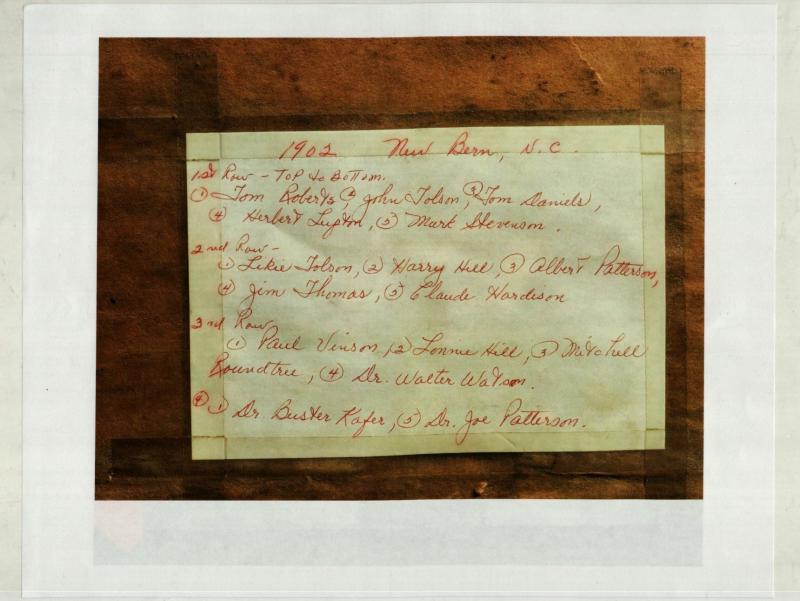 1902 New Bern, N.C.
1st Row - Top to Bottom.
① Tom Roberts ② John Tolson, ③ Tom Daniels,
④ Herbert Lupton, ⑤ Mark Stevenson.
2nd Row -
① Likie Tolson, ② Harry Hill, ③ Albert Patterson,
④ Jim Thomas, ⑤ Claude Hardison
3rd Row
① Paul Vinson, ② Lonnie Hill, ③ Mitchell
Roundtree, ④ Dr. Walter Watson.
④ ① Dr. Buster Kafer, ⑤ Dr. Joe Patterson.